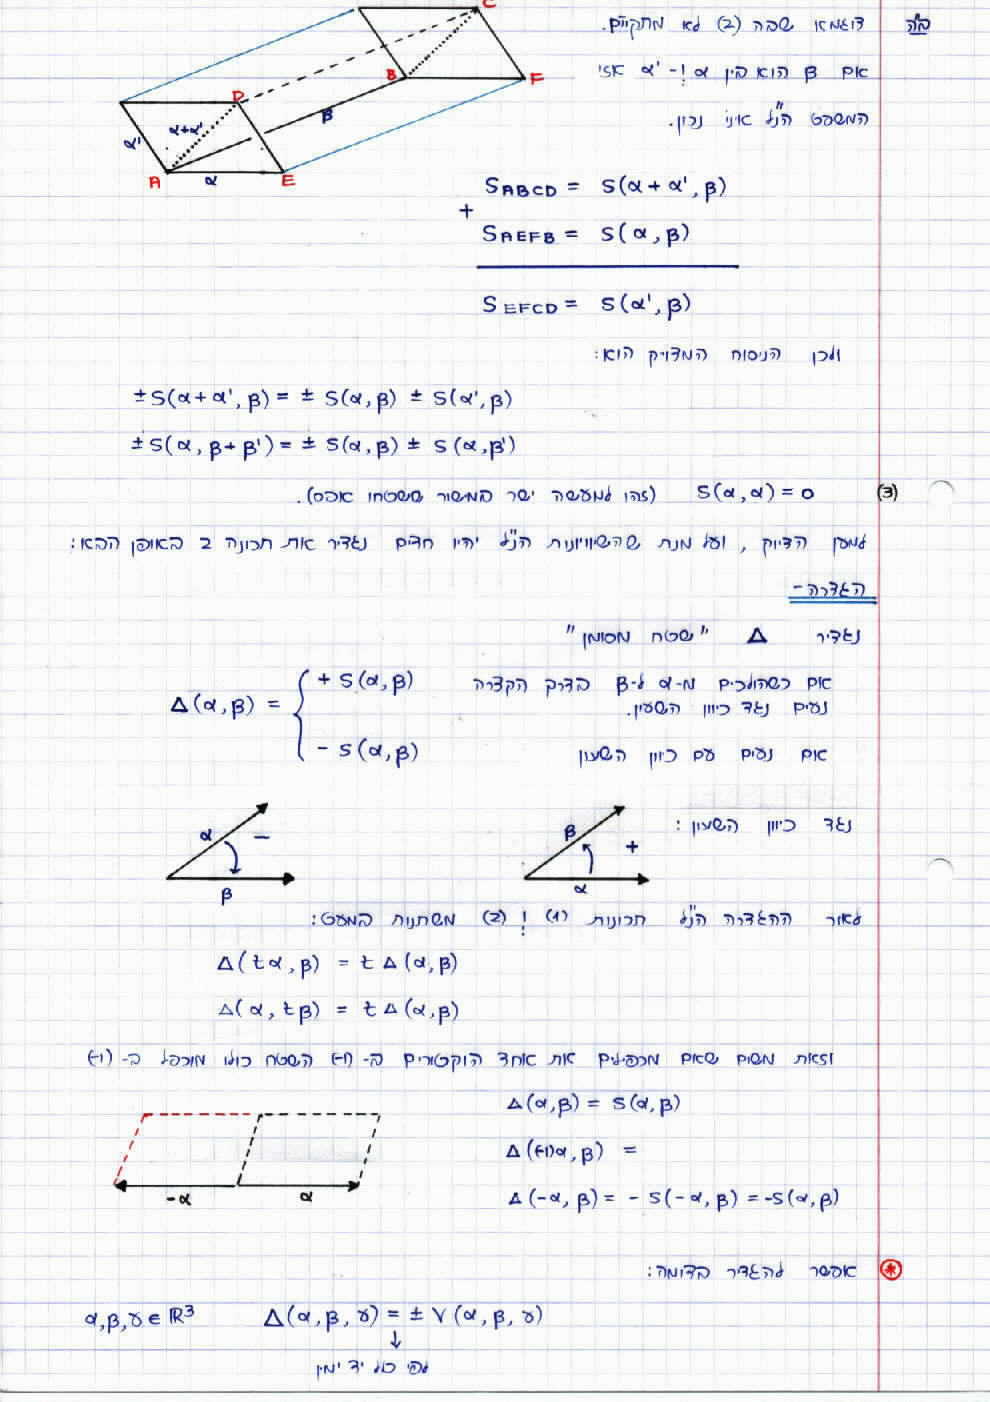 ב"ה דוגמא שבה (2) לא מתקיים.
אם β הוא בין α ו- α' אזי
המשפט הנ"ל אינו נכון.
C
B
F
D
β
α'
α+α'
A
α
E
S ABCD = S(α + α', β)
+
S AEFB = S(α, β)
S EFCD = S(α', β)
ולכן הניסוח המדויק הוא:
±S(α+α', β) = ± S(α,β) ± S(α',β)
±S(α, β+β') = ± S(α,β) ± S(α,β')
(3) S(α,α) = 0 (זהו למעשה ישר במישור ששטחו אפס).
למען הדיוק, ועל מנת שהשיוויונות הנ"ל יהיו חדים נגדיר את תכונה 2 באופן הבא:
הגדרה -
נגדיר Δ "שטח מסומן"
Δ(α,β) = { + S(α,β) אם כשהולכים מ-α ל-β בדרך הקצרה
נעים נגד כיוון השעון.
- S(α,β) אם נעים עם כיוון השעון
נגד כיוון השעון:
α
-
β
β
+
α
לאור ההגדרה הנ"ל תכונות (1) ו (2) משתנות במעט:
Δ(tα,β) = tΔ(α,β)
Δ(α,tβ) = tΔ(α,β)
וזאת משום שאם מכפילים את אחד הוקטורים ב- (-1) השטח כולו מוכפל ב- (-1)
Δ(α,β) = S(α,β)
Δ((-1)α,β) =
Δ(-α,β) = - S(-α,β) = -S(α,β)
-α
α
* אפשר להגדיר בדומה:
α,β,γ ∈ ℝ³ Δ(α,β,γ) = ± V(α,β,γ)
↓
לפי כלל יד ימין